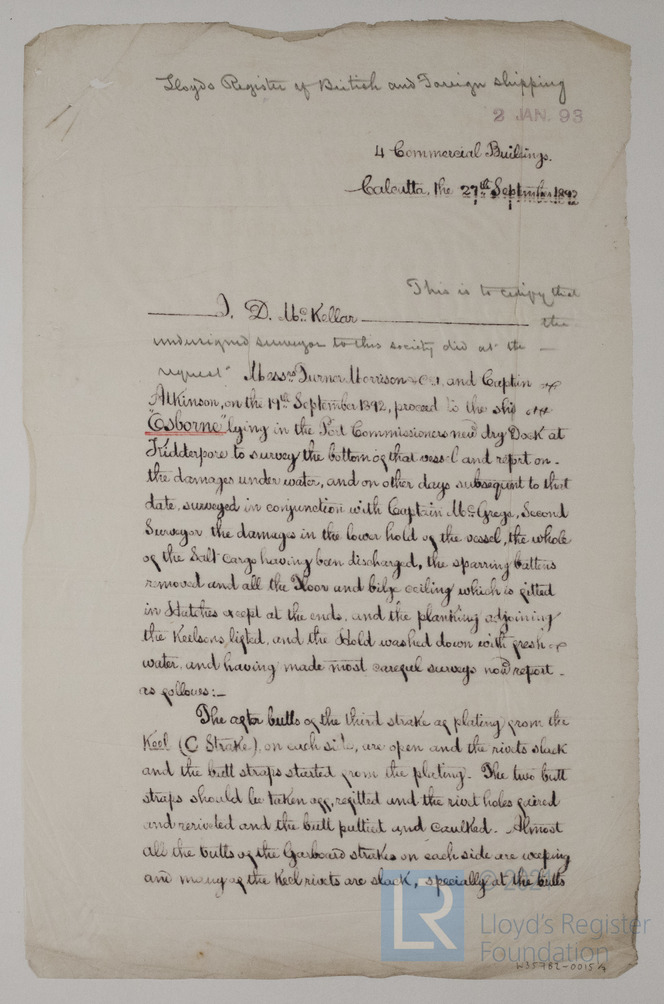 Lloyds Register of British and Foreign Shipping
2 JAN. 93
4 Commercial Buildings.
Calcutta, the 27th September 1892
This is to certify that
I. D. McKellar the
undersigned surveyor to this society did at the
request Messrs Turner Morrison & Co., and Captain of
Atkinson, on the 19th September 1892, proceed to the ship
"Osborne" lying in the Port Commissioners new dry Dock at
Kidderpore to survey the bottom of that vessel and report on
the damages under water, and on other days subsequent to that
date, surveyed in conjunction with Captain McGregor, Second
Surveyor the damages in the lower hold of the vessel, the whole
of the Salt cargo having been discharged, the sparring battens
removed and all the Floor and bilge ceiling which is fitted
in Hatches except at the ends, and the planking adjoining
the Keelsons, lifted, and the Hold washed down with fresh
water, and having made most careful surveys now report
as follows:—
The after butts of the third strake of plating from the
Keel (C Strake), on each side, are open and the rivets slack
and the butt straps started from the plating. The two butt
straps should be taken off, refitted and the rivet holes faired
and reriveted and the butt puttied and caulked. Almost
all the butts of the Garboard strakes on each side are weeping
and many of the Keel rivets are slack, specially at the butts
LR
© 202
Lloyd's Register
Foundation
W35982-0015